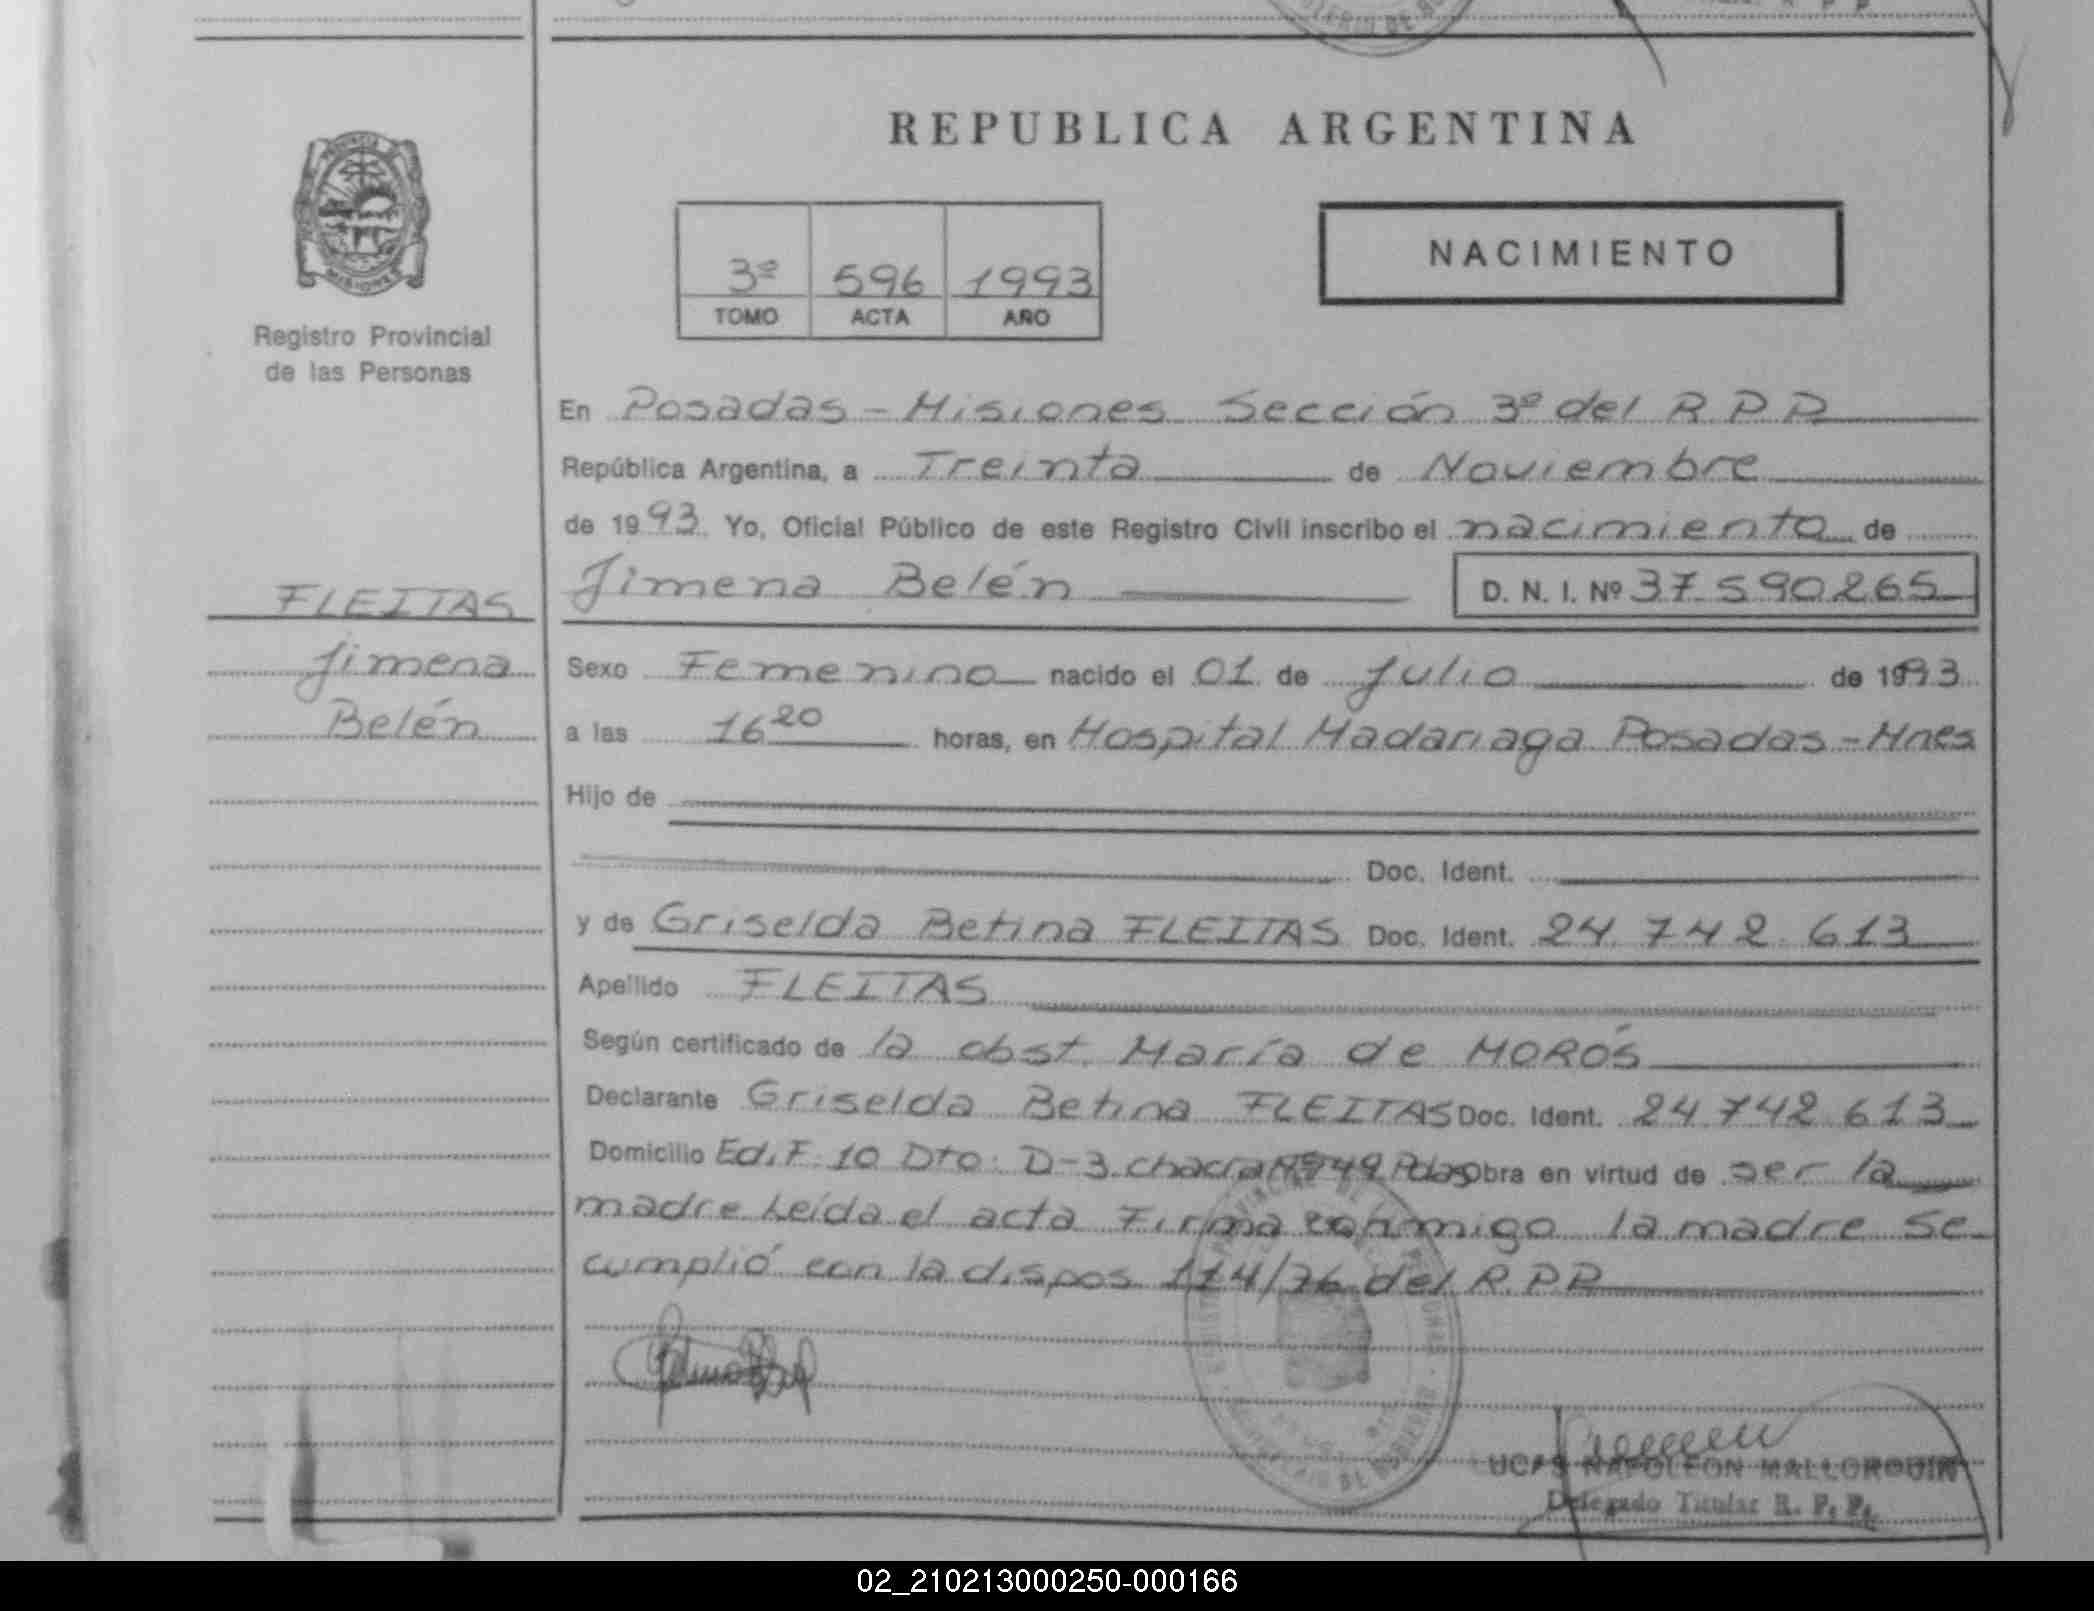 REPUBLICA ARGENTINA
NACIMIENTO
3º 596 1993
TOMO ACTA AÑO
Registro Provincial
de las Personas
En Posadas - Misiones Sección 3º del R.P.P
República Argentina, a Treinta de Noviembre
de 1993. Yo, Oficial Público de este Registro Civil inscribo el nacimiento de
Jimena Belén D. N. I. Nº 37.590.265
FLEITAS
Jimena
Belén
Sexo Femenino nacido el 01 de Julio de 1993
a las 16 20 horas, en Hospital Madariaga Posadas - Mnes
Hijo de
Doc. Ident.
y de Griselda Betina FLEITAS Doc. Ident. 24.742.613
Apellido FLEITAS
Según certificado de la obst. María de MORÓS
Declarante Griselda Betina FLEITAS Doc. Ident. 24.742.613
Domicilio Edif. 10 Dto. D-3 chacra Obra en virtud de ser la
madre Leída el acta Firma conmigo la madre se
cumplió con la dispos 114/76 del R.P.P
NAPOLEON MALLORQUIN
Delegado Titular R. P. P.
02_210213000250-000166